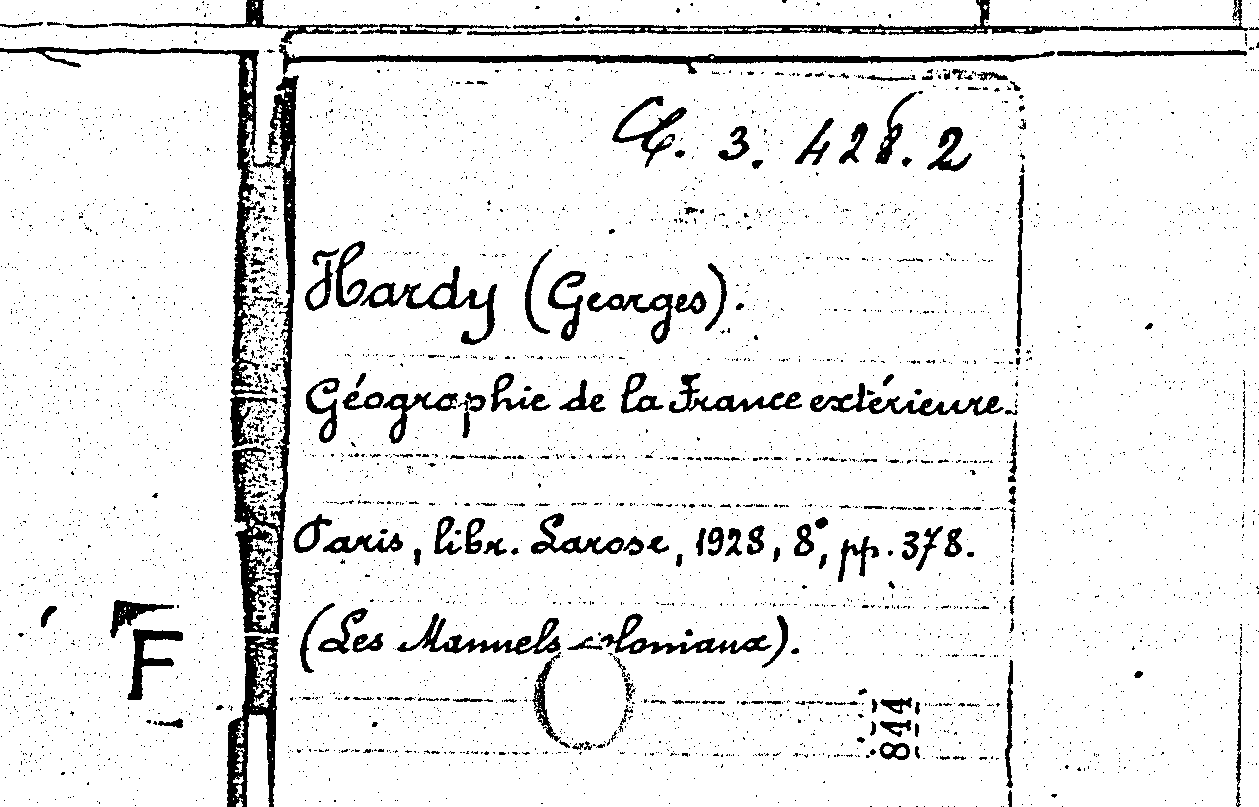 Cl. 3. 428. 2
Hardy (Georges).
Géographie de la France extérieure.
Paris, libr. Larose, 1928, 8°, pp. 378.
(Les Manuels coloniaux).
F
844